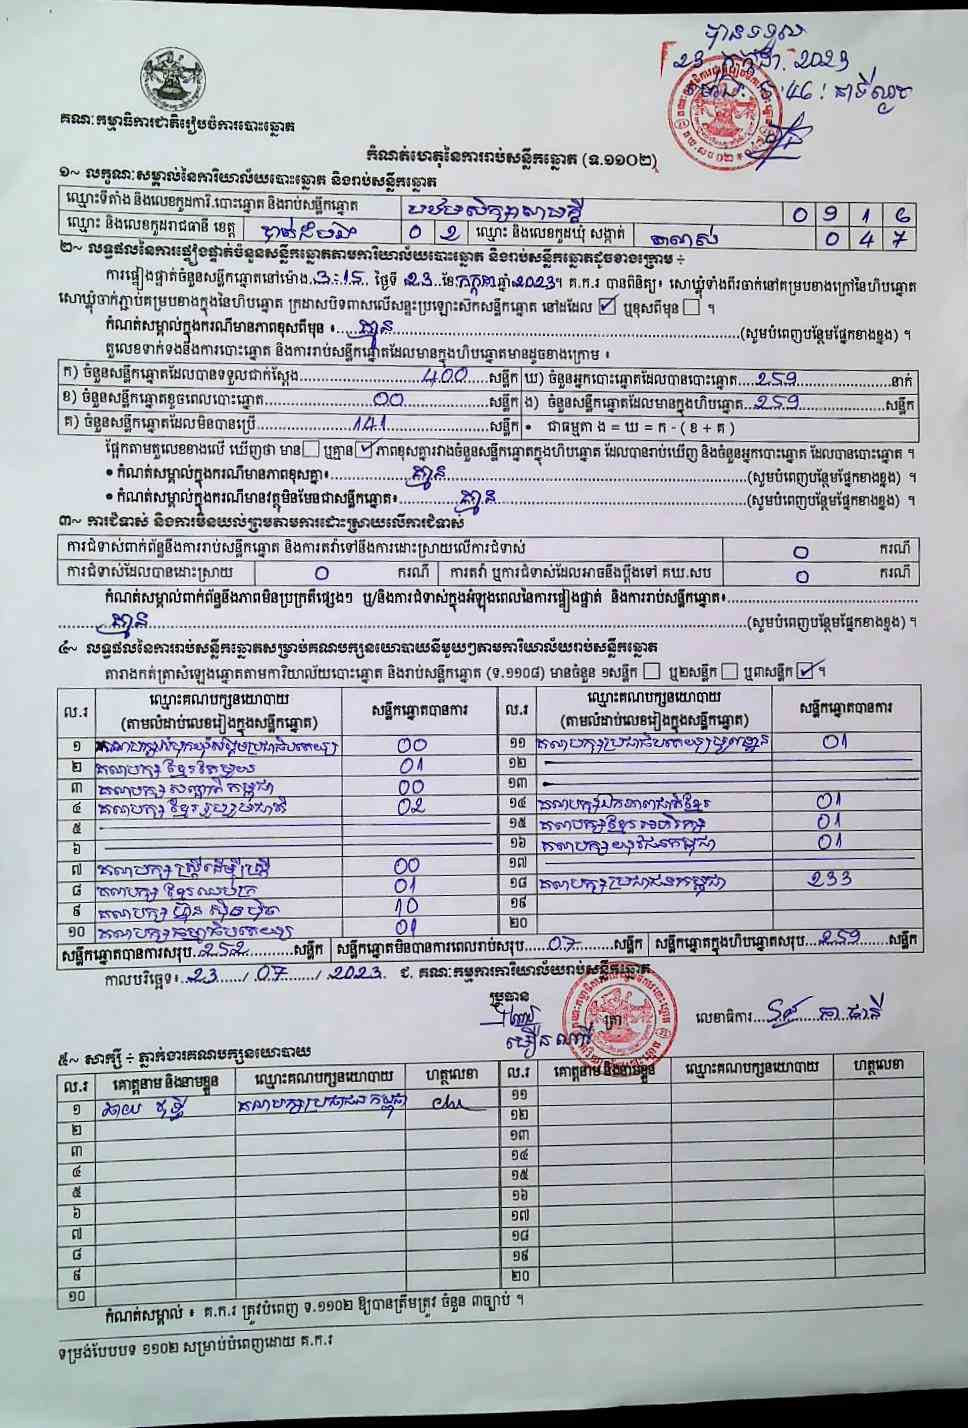 បានទទួល
23 កក្កដា 2023
គណៈកម្មាធិការជាតិរៀបចំការបោះឆ្នោត
កំណត់ហេតុនៃការរាប់សន្លឹកឆ្នោត (ទ.១១០២)
១~ លក្ខណៈសម្គាល់នៃការិយាល័យបោះឆ្នោត និងរាប់សន្លឹកឆ្នោត
ឈ្មោះទីតាំង និងលេខកូដការិ.បោះឆ្នោត និងរាប់សន្លឹកឆ្នោត បឋមសិក្សាសាមគ្គី 0 9 1 6
ឈ្មោះ និងលេខកូដរាជធានី ខេត្ត បាត់ដំបង 0 2 ឈ្មោះ និងលេខកូដឃុំ សង្កាត់ 0 4 7
២~ លទ្ធផលនៃការផ្ទៀងផ្ទាត់ចំនួនសន្លឹកឆ្នោតតាមការិយាល័យបោះឆ្នោត និងរាប់សន្លឹកឆ្នោតដូចខាងក្រោម ÷
ការផ្ទៀងផ្ទាត់ចំនួនសន្លឹកឆ្នោតនៅម៉ោង 3:15 ថ្ងៃទី 23 ខែ កក្កដា ឆ្នាំ 2023។ គ.ក.រ បានពិនិត្យ៖ សោឃ្លុំទាំងពីរចាក់នៅគម្របខាងក្រៅនៃហិបឆ្នោត
សោឃ្លុំចាក់ភ្ជាប់គម្របខាងក្នុងនៃហិបឆ្នោត ក្រដាសបិទពាសលើសន្ទះប្រឡោះស៊កសន្លឹកឆ្នោត នៅដដែល ☑ ឬខុសពីមុន ☐ ។
កំណត់សម្គាល់ក្នុងករណីមានភាពខុសពីមុន ៖ គ្មាន (សូមបំពេញបន្ថែមផ្នែកខាងខ្នង) ។
តួលេខទាក់ទងនឹងការបោះឆ្នោត និងការរាប់សន្លឹកឆ្នោតដែលមានក្នុងហិបឆ្នោតមានដូចខាងក្រោម ៖
ក) ចំនួនសន្លឹកឆ្នោតដែលបានទទួលជាក់ស្តែង 400 សន្លឹក ឃ) ចំនួនអ្នកបោះឆ្នោតដែលបានបោះឆ្នោត 259 នាក់
ខ) ចំនួនសន្លឹកឆ្នោតខូចពេលបោះឆ្នោត 00 សន្លឹក ង) ចំនួនសន្លឹកឆ្នោតដែលមានក្នុងហិបឆ្នោត 259 សន្លឹក
គ) ចំនួនសន្លឹកឆ្នោតដែលមិនបានប្រើ 141 សន្លឹក • ជាធម្មតា ង = ឃ = ក - ( ខ + គ )
ផ្អែកតាមតួលេខខាងលើ ឃើញថា មាន ☐ ឬគ្មាន ☑ ភាពខុសគ្នារវាងចំនួនសន្លឹកឆ្នោតក្នុងហិបឆ្នោត ដែលបានរាប់ឃើញ និងចំនួនអ្នកបោះឆ្នោត ដែលបានបោះឆ្នោត ។
• កំណត់សម្គាល់ក្នុងករណីមានភាពខុសគ្នា៖ គ្មាន (សូមបំពេញបន្ថែមផ្នែកខាងខ្នង) ។
• កំណត់សម្គាល់ក្នុងករណីមានវត្ថុមិនមែនជាសន្លឹកឆ្នោត៖ គ្មាន (សូមបំពេញបន្ថែមផ្នែកខាងខ្នង) ។
៣~ ការជំទាស់ និងការមិនយល់ព្រមតាមការដោះស្រាយលើការជំទាស់
ការជំទាស់ពាក់ព័ន្ធនឹងការរាប់សន្លឹកឆ្នោត និងការតវ៉ាទៅនឹងការដោះស្រាយលើការជំទាស់ 0 ករណី
ការជំទាស់ដែលបានដោះស្រាយ 0 ករណី ការតវ៉ា ឬការជំទាស់ដែលអាចនឹងប្តឹងទៅ គឃ.សប 0 ករណី
កំណត់សម្គាល់ពាក់ព័ន្ធនឹងភាពមិនប្រក្រតីផ្សេងៗ ឬ/និងការជំទាស់ក្នុងអំឡុងពេលនៃការផ្ទៀងផ្ទាត់ និងការរាប់សន្លឹកឆ្នោត៖
គ្មាន (សូមបំពេញបន្ថែមផ្នែកខាងខ្នង) ។
៤~ លទ្ធផលនៃការរាប់សន្លឹកឆ្នោតសម្រាប់គណបក្សនយោបាយនីមួយៗតាមការិយាល័យរាប់សន្លឹកឆ្នោត
តារាងកត់ត្រាសំឡេងឆ្នោតតាមការិយាល័យបោះឆ្នោត និងរាប់សន្លឹកឆ្នោត (ទ.១១០៨) មានចំនួន ១សន្លឹក ☐ ឬ២សន្លឹក ☐ ឬ៣សន្លឹក ☑ ។
ល.រ ឈ្មោះគណបក្សនយោបាយ (តាមលំដាប់លេខរៀងក្នុងសន្លឹកឆ្នោត) សន្លឹកឆ្នោតបានការ ល.រ ឈ្មោះគណបក្សនយោបាយ (តាមលំដាប់លេខរៀងក្នុងសន្លឹកឆ្នោត) សន្លឹកឆ្នោតបានការ
១ គណបក្សសំបុកឃ្មុំសង្គមប្រជាធិបតេយ្យ 00 ១១ គណបក្សប្រជាធិបតេយ្យមូលដ្ឋាន 01
២ គណបក្សខ្មែរតែមួយ 01 ១២
៣ គណបក្ស កម្ពុជា 00 ១៣
៤ គណបក្សខ្មែររួបរួមជាតិ 02 ១៤ គណបក្សឯកភាពជាតិខ្មែរ 01
៥ ១៥ គណបក្សខ្មែរអភិរក្ស 01
៦ ១៦ គណបក្សយុវជនកម្ពុជា 01
៧ គណបក្សស្ត្រីដើម្បីស្ត្រី 00 ១៧
៨ គណបក្សខ្មែរឈប់ក្រ 01 ១៨ គណបក្សប្រជាជនកម្ពុជា 233
៩ គណបក្សហ៊្វុនស៊ិនប៉ិច 10 ១៩
១០ គណបក្សធម្មាធិបតេយ្យ 01 ២០
សន្លឹកឆ្នោតបានការសរុប 252 សន្លឹក សន្លឹកឆ្នោតមិនបានការពេលរាប់សរុប 07 សន្លឹក សន្លឹកឆ្នោតក្នុងហិបឆ្នោតសរុប 259 សន្លឹក
កាលបរិច្ឆេទ៖ 23 / 07 / 2023 ជ. គណៈកម្មការការិយាល័យរាប់សន្លឹកឆ្នោត
ប្រធាន ត្រា លេខាធិការ
៥~ សាក្សី ÷ ភ្នាក់ងារគណបក្សនយោបាយ
ល.រ គោត្តនាម និងនាមខ្លួន ឈ្មោះគណបក្សនយោបាយ ហត្ថលេខា ល.រ គោត្តនាម និងនាមខ្លួន ឈ្មោះគណបក្សនយោបាយ ហត្ថលេខា
១ គណបក្សប្រជាជនកម្ពុជា ១១
២ ១២
៣ ១៣
៤ ១៤
៥ ១៥
៦ ១៦
៧ ១៧
៨ ១៨
៩ ១៩
១០ ២០
កំណត់សម្គាល់ ៖ គ.ក.រ ត្រូវបំពេញ ទ.១១០២ ឱ្យបានត្រឹមត្រូវ ចំនួន ៣ច្បាប់ ។
ទម្រង់បែបបទ ១១០២ សម្រាប់បំពេញដោយ គ.ក.រ